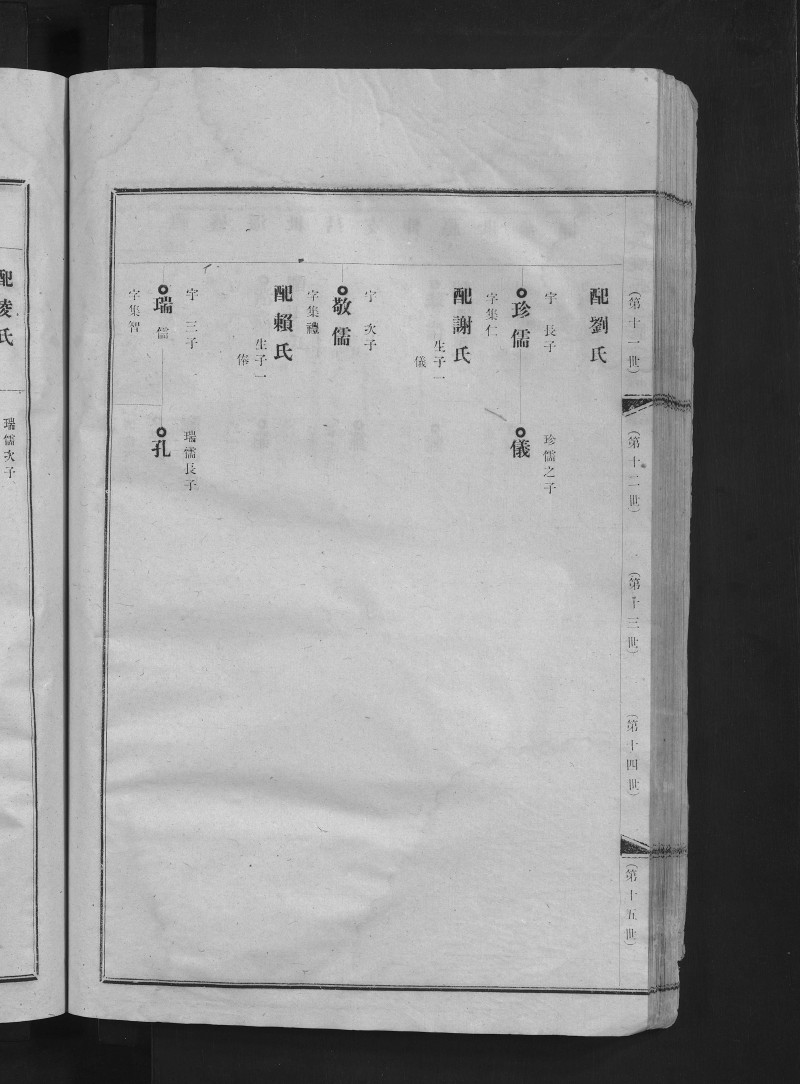 （第十一世）
（第十二世）
（第十三世）
（第十四世）
（第十五世）
配劉氏
宇長子
珍儒
字集仁
珍儒之子
儀
配謝氏
生子一
儀
宇次子
敬儒
字集禮
配賴氏
生子一
俸
宇三子
瑞儒
字集智
瑞儒長子
孔
配凌氏
瑞儒次子